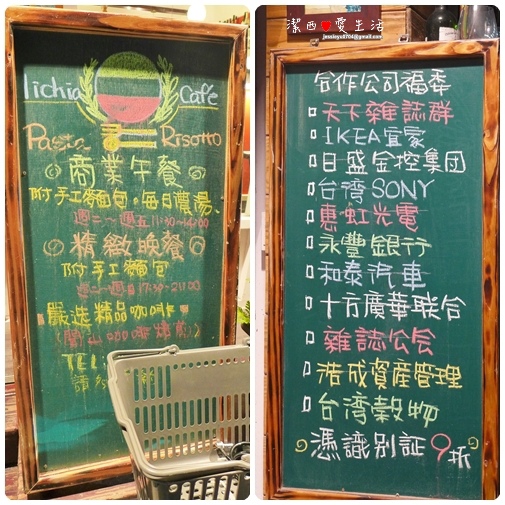 lichia Café
Pasta Risotto
商業午餐
附手工麵包。每日濃湯、
週二~週五 11:30~14:00
精緻晚餐
附手工麵包
週二~週 17:30~21:00
嚴选精品咖啡
TEL
請
潔西♥愛生活
合作公司福委
天下雜誌群
IKEA宜家
日盛金控集团
台湾SONY
惠虹光電
永豐銀行
和泰汽車
十方廣華联合
雜誌公会
浩成資産管理
台湾穀物
憑識別証9折